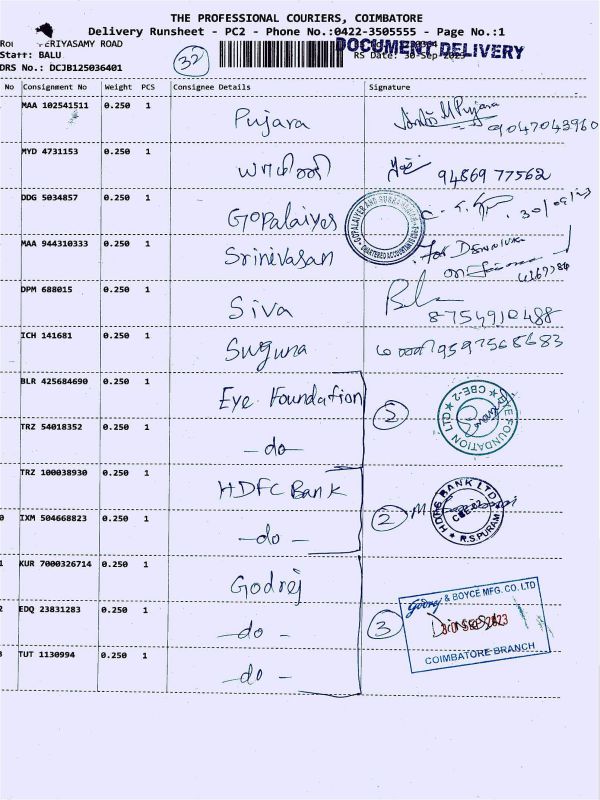 THE PROFESSIONAL COURIERS, COIMBATORE
Delivery Runsheet - PC2 - Phone No.:0422-3505555 - Page No.:1
ERIYASAMY ROAD
DOCUMENT DELIVERY
BALU
32
RS Date: 30-Sep-2023
DRS No.: DCJB125036401
No Consignment No Weight PCS Consignee Details Signature
MAA 102541511 0.250 1 Pujara 9047043960
MYD 4731153 0.250 1 94869 77562
DDG 5034857 0.250 1 Gopalaiyer 30/09/23
MAA 944310333 0.250 1 Srinivasan for
DPM 688015 0.250 1 Siva 8754910488
ICH 141681 0.250 1 Suguna 9597568683
BLR 425684690 0.250 1 Eye Foundation 2 EYE FOUNDATION LTD CBE-2
TRZ 54018352 0.250 1 -do-
TRZ 100038930 0.250 1 HDFC Bank
0 IXM 504668823 0.250 1 -do- 2 HDFC BANK LTD R.S.PURAM
1 KUR 7000326714 0.250 1 Godrej
Godrej & BOYCE MFG. CO. LTD
2 EDQ 23831283 0.250 1 -do- 3 30 SEP 2023
COIMBATORE BRANCH
3 TUT 1130994 0.250 1 -do-